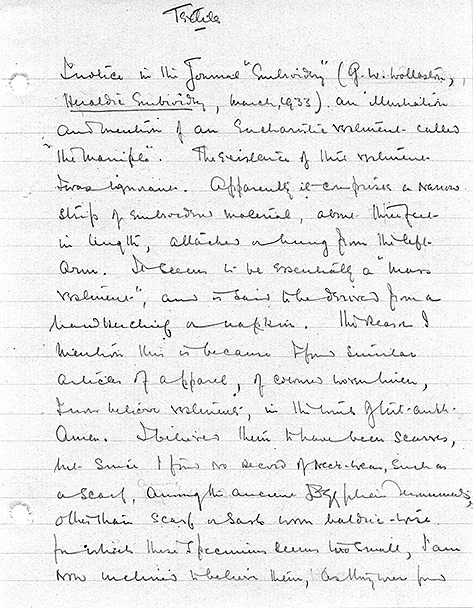 Textiles
I notice in the Journal "Embroidery" (G. W. Wollaston,
Heraldic Embroidery, March, 1933) an illustration
and mention of an Eucharistic vestment called
"the Maniple". The existence of this vestment
I was ignorant. Apparently it comprises a narrow
strip of embroidered material, about three feet
in length, attached or hung from the left
arm. It seems to be essentially a "mass
vestment", and is said to be derived from a
handkerchief or napkin. The reason I
mention this is because I find similar
articles of apparel, of coloured woven linen,
I now believe vestments, in the tomb of Tut-ankh-
Amen. I believed them to have been scarves,
but since I find no record of neck-wear, such as
a scarf, among the ancient Egyptian monuments,
other than scarf or sash worn baldric-wise
for which these specimens seem too small, I am
now inclined to believe them, as they were found